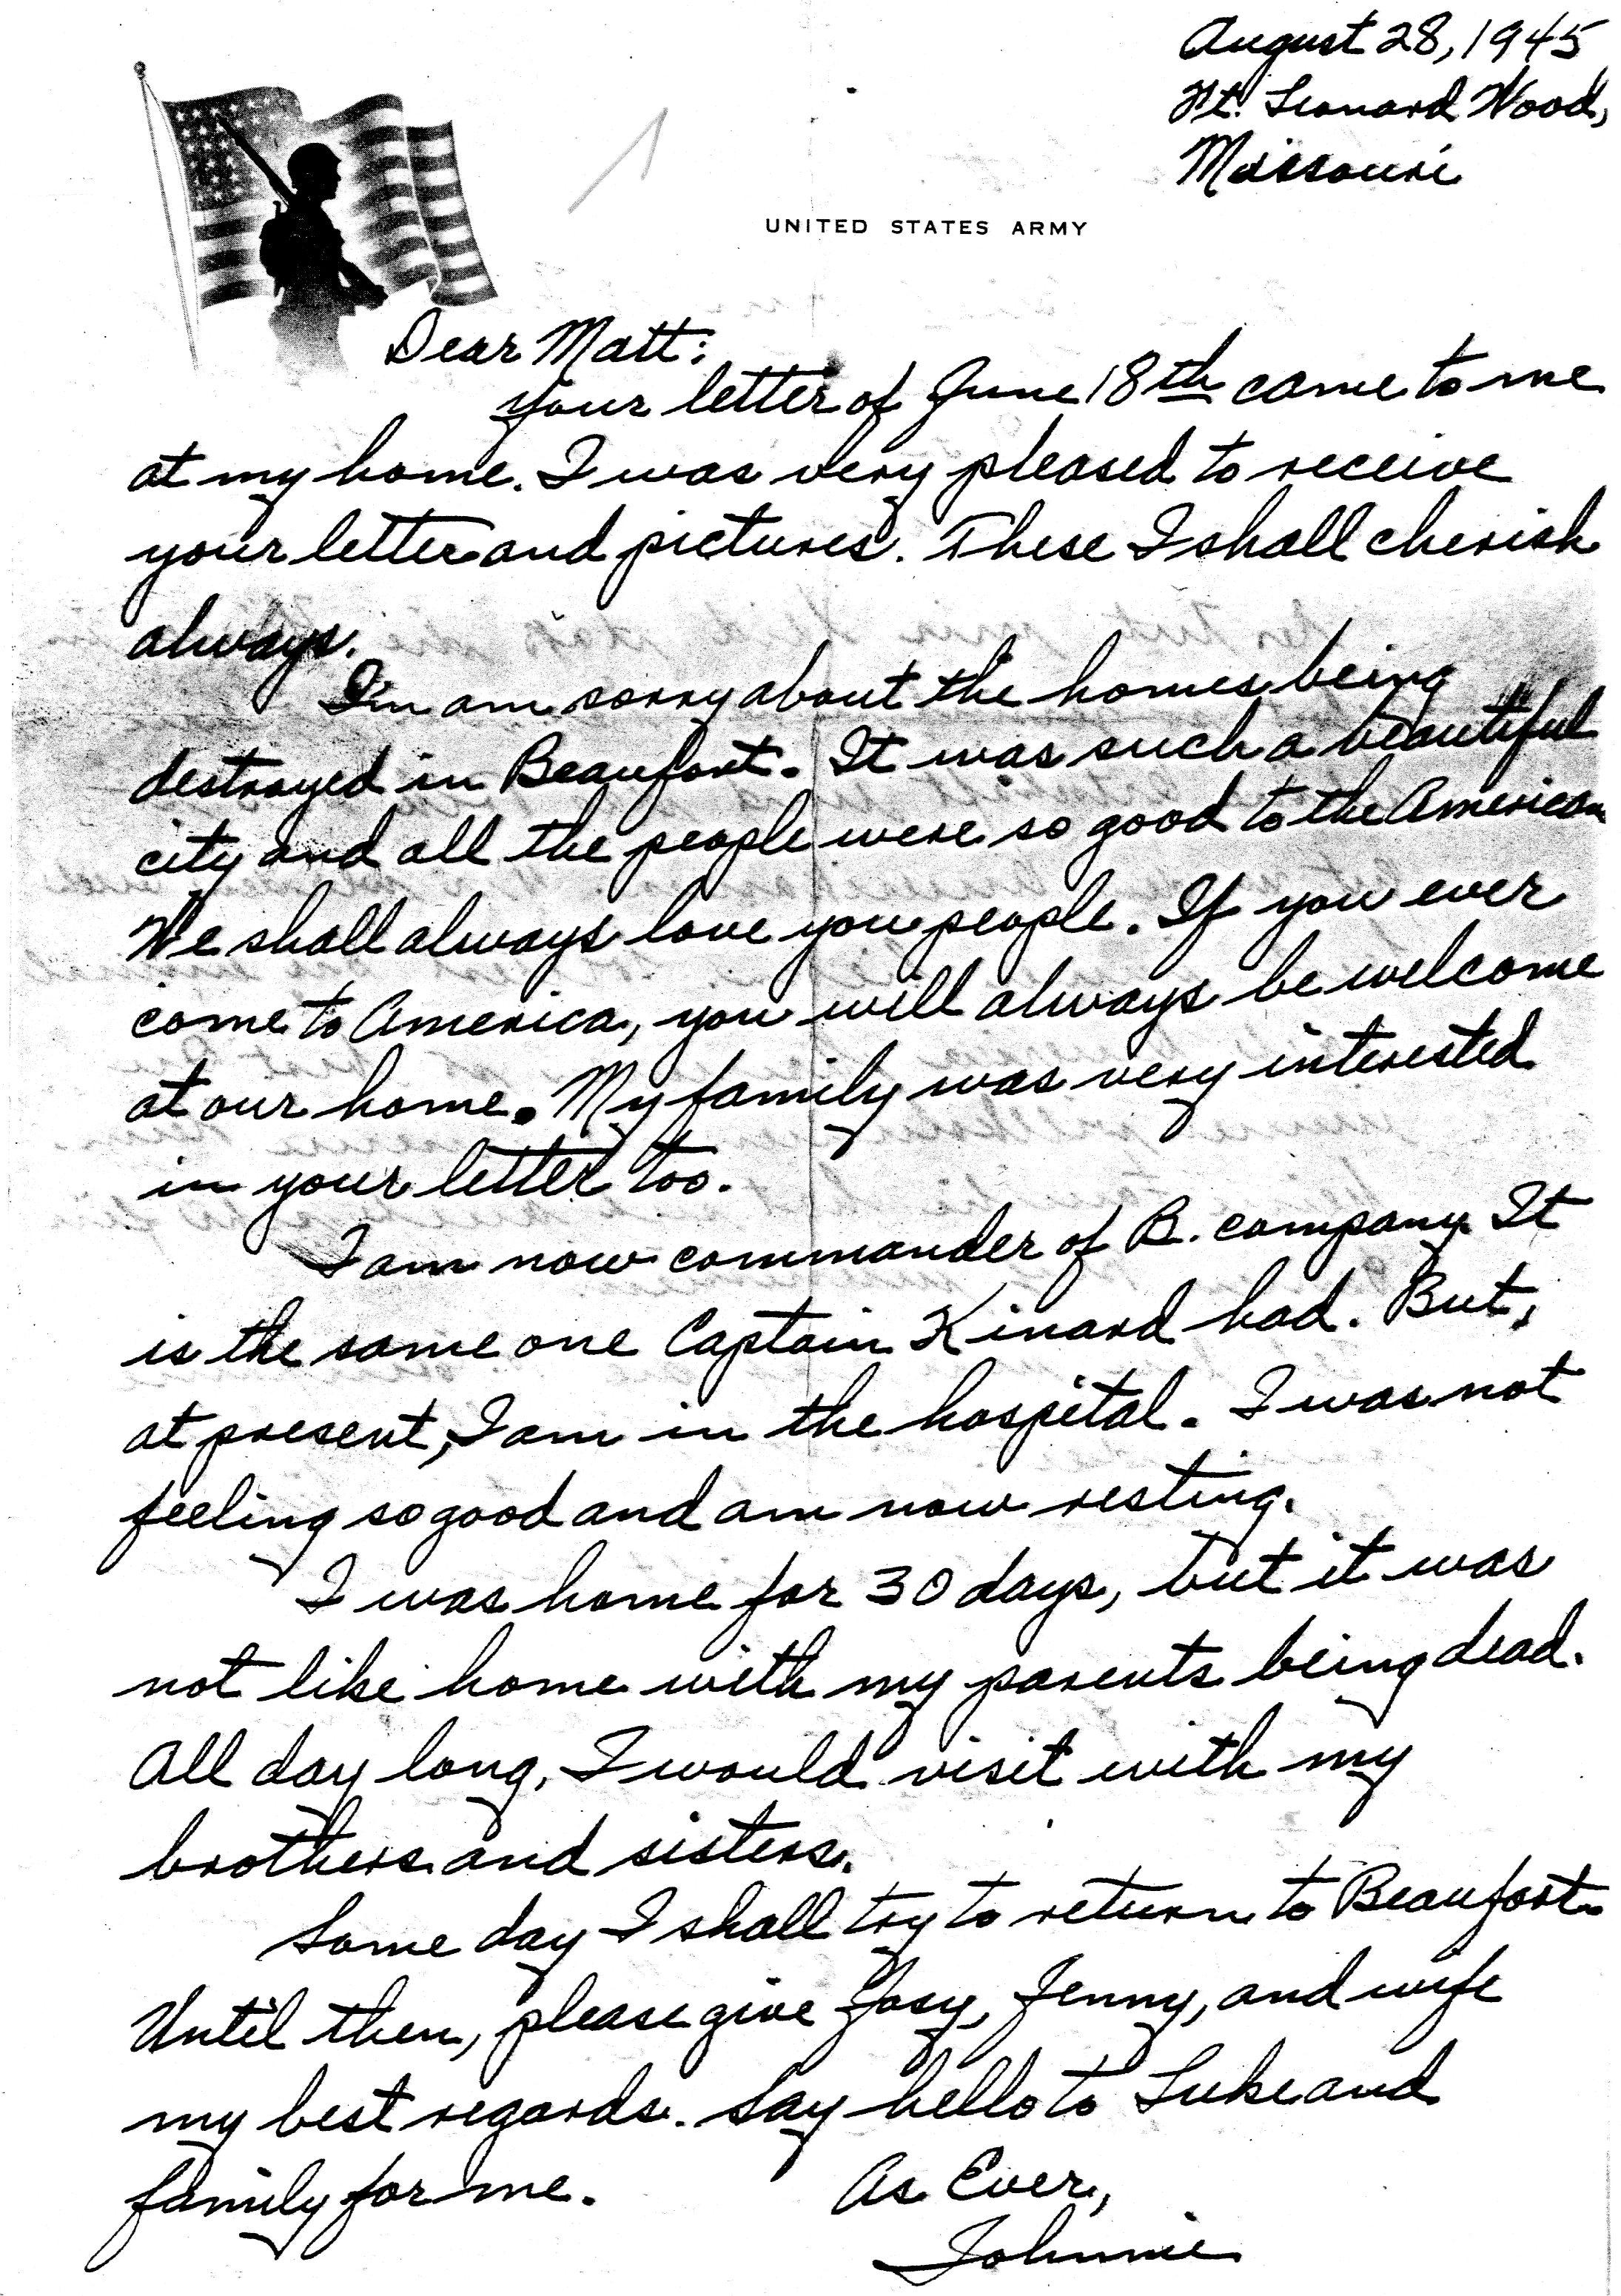 August 28, 1945
Ft. Leonard Wood,
Missouri
UNITED STATES ARMY
Dear Matt:
Your letter of June 18th came to me
at my home. I was very pleased to receive
your letter and pictures. These I shall cherish
always.
I'm am sorry about the homes being
destroyed in Beaufort. It was such a beautiful
city and all the people were so good to the American
We shall always love you people. If you ever
come to America, you will always be welcome
at our home. My family was very interested
in your letter too.
I am now commander of B. company. It
is the same one Captain Kinard had. But,
at present, I am in the hospital. I was not
feeling so good and am now resting.
I was home for 30 days, but it was
not like home with my parents being dead.
All day long, I would visit with my
brothers and sisters.
Some day I shall try to return to Beaufort.
Until then, please give Josy, Jenny, and wife
my best regards. Say hello to Luke and
family for me.
As Ever,
Johnnie